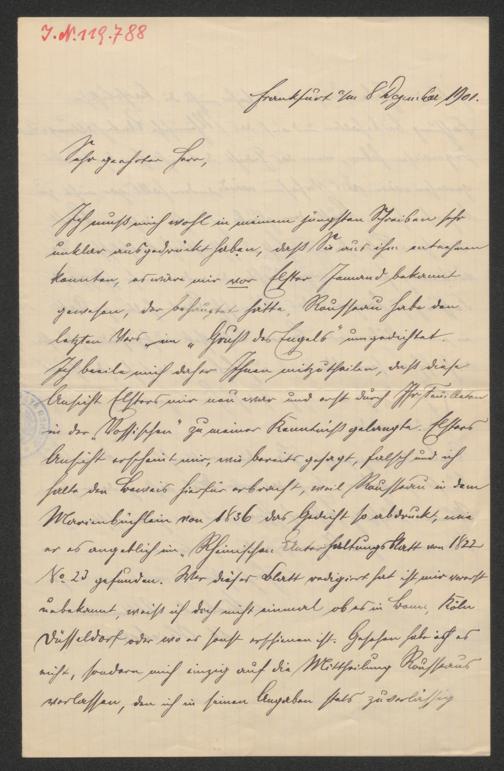 I. N. 119.788
Frankfurt a/m 8 Dezember 1901.
Sehr geehrter Herr,
Ich muß mich wohl in meinem jüngsten Schreiben sehr
unklar ausgedrückt haben, daß Sie aus ihm entnehmen
konnten, es wäre mir vor Elster Jemand bekannt
gewesen, der behauptet hätte, Rousseau habe den
letzten Vers im „Gruß des Engels" umgedichtet.
Ich beeile mich daher Ihnen mitzutheilen, daß diese
Ansicht Elsters mir neu war und erst durch Ihr
in der „Vossischen" zu meiner Kenntniß gelangte. Elsters
Ansicht erscheint mir, wie bereits gesagt, falsch und ich
halte den Beweis hierfür erbracht, weil Rousseau in dem
Marienbüchlein von 1836 das Gedicht so abdruckt, wie
er es angeblich im Rheinischen Unterhaltungsblatt von 1822
No 23 gefunden. Wer dieses Blatt redigiert hat ist mir
unbekannt, weiß ich doch nicht einmal ob es in Bonn, Köln
Düsseldorf oder wo es sonst erschienen ist. Gesehen habe ich es
nicht, sondern mich einzig auf die Mittheilung Rousseaus
verlassen, den ich in seinen Angaben stets zuverlässig